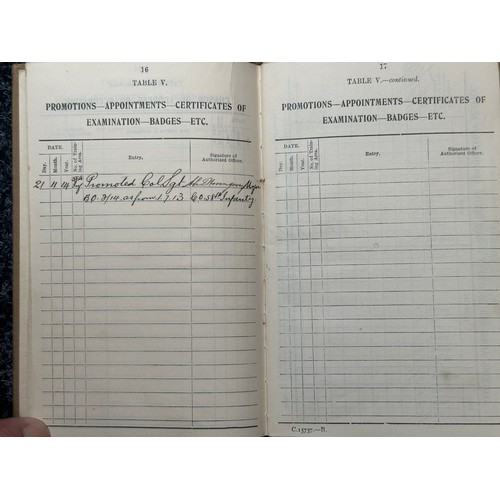 16
TABLE V.
PROMOTIONS—APPOINTMENTS—CERTIFICATES OF
EXAMINATION—BADGES—ETC.
DATE.
Day.
Month.
Year.
No. of Training Area.
Entry.
Signature of
Authorised Officer.
21 11 14 Promoted Col Sgt Major
B.O. 3/14. as from 1.7.13 C.O. 58th Infantry
17
TABLE V.—continued.
PROMOTIONS—APPOINTMENTS—CERTIFICATES OF
EXAMINATION—BADGES—ETC.
DATE.
Day.
Month.
Year.
No. of Training Area.
Entry.
Signature of
Authorised Officer.
C.15737.—B.